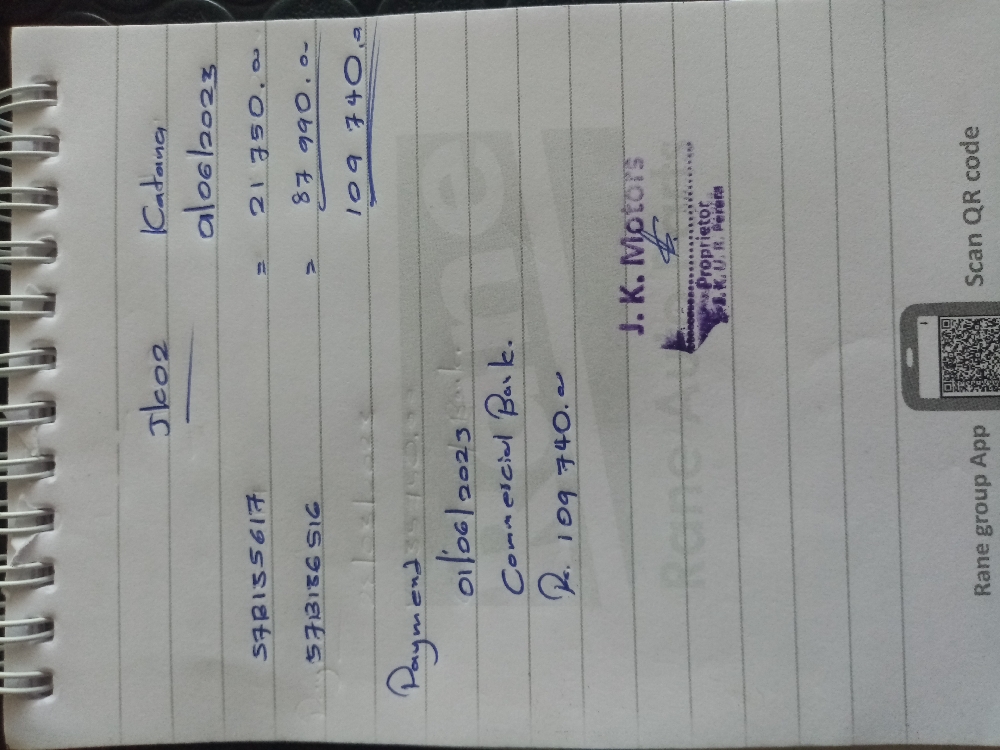 JK02 Katana
01/06/2023
57B135617 = 21 750.00
57B136516 = 87 990.00
109 740.00
Payment
01/06/2023
Commercial Bank.
Rs. 109 740.00
J. K. Motors
Proprietor
J. K. U. R. Perera
Rane group App Scan QR code